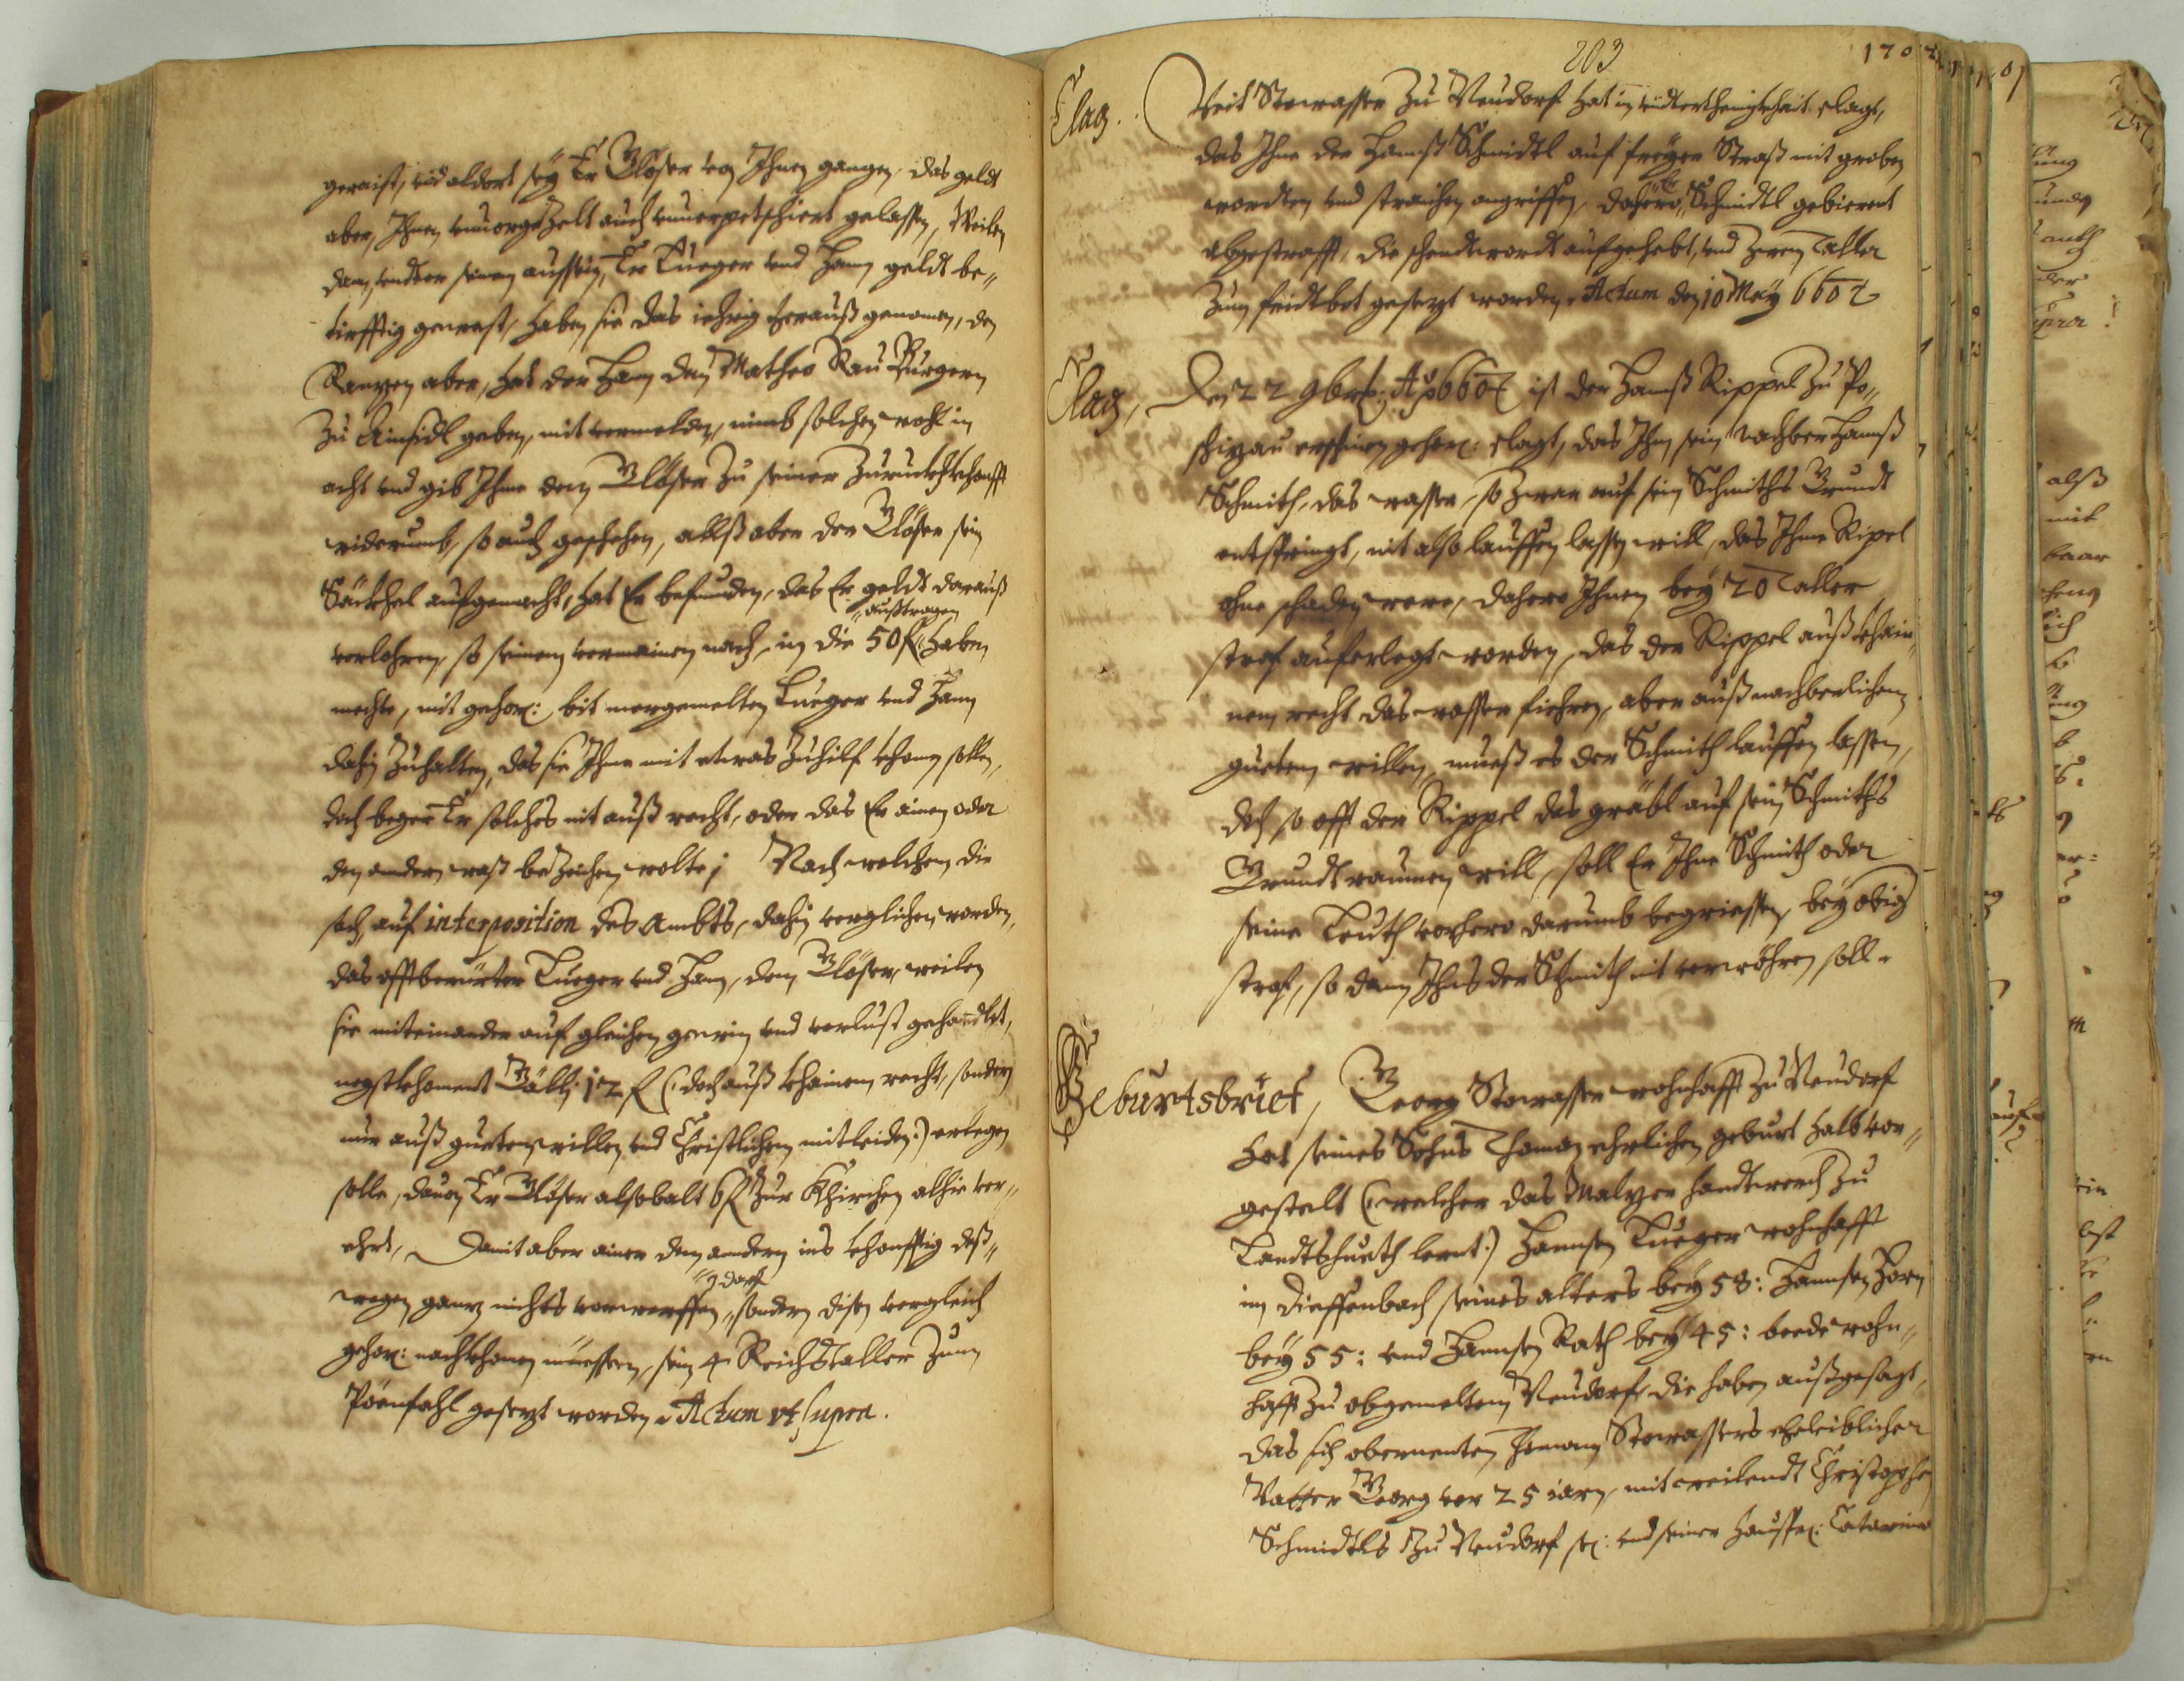 geraist, und aldort sey Er Gloser von Ihnen gangen, das geldt
aber, Ihnen unvorgezelt auch unverpetschiert gelassen, Weilen
dann, undter seinen aussein, Er Lueger und Hann geldt be„
dirfftig gewest, haben sie das iehrig herauß genomen, den
Ranzen aber, hat der Hann dem Matheo Rau Burgern
Zu Ainsidl geben, mit vermelden, nimb solchen wohl in
acht und gib Ihme dem Gloser zu seiner Zuruckhkhonfft
widerumb, so auch geschehen, allß aber der Gloser sein
Säckhel aufgemacht, hat Er befunden, das Er geldt darauß
verlohren, so seinem vermainen nach, in die 50 f „außtragen„ haben
mechte, mit gehor: bit vorgemelten Lueger und Hann
dahin Zuhalten, das sie Ihme mit etwas Zuhilf khomen sollen,
doch beger Er solches nit auß recht, oder das Er ainen oder
den andern waß beZeichen wolte; Nach welchen die
sach, auf interposition des Ambts, dahin verglichen worden,
das offtberürter Lueger und Hann, dem Gloser, weilen
sie miteinander auf gleichen gewin und verlust gehandlet,
negstkhoment Galli 12 f (: doch auß khainem recht, sondern
nur auß guetem willen und Christlichen mitleiden:) erlegen
solle, davon Er Gloser alsobalt 6 f Zur Khirchen alhie ver„
ehrt, Damit aber ainer dem andern ins khonfftig deß„
wegen ganz nichts vorwerffen „darf„ sondern disen vergleich
gehor: nachkhomen müessen, sein 4 Reichstaller Zum
Pöenfahl gesezt worden. Actum ut supra.
203
170
Clag. Veit Stowasser Zu Neudorf hat in undterthenigkhait clagt,
das Ihne der Hannß Schmidtl auf freyer Straß mit groben
wordten und straichen angriffen, dahero „er„ Schmidtl gebierent
abgestrafft, die schendtwordt aufgehebt, und zwen Taller
Zum fridtbot gesezt worden. Actum den 10 May 660
Clag, Den 22 9bris Ao 660 ist der Hannß Rippel Zu Po„
schizau erschinen gehor: clagt, das Ihm sein nachber Hannß
Schmith, das wasser, so zwar auf sein Schmiths Grundt
entspringt, nit also lauffen lassen will, das Ihme Ripel
ohne schaden were, dahero Ihnen bey 20 Taller
straf auferlegt worden, das der Rippel auß khain„
nem recht das wasser fiehren, aber auß nachberlichem
guetem willen, mueß es der Schmith lauffen lassen,
doch so offt der Rippel das gräbl auf sein Schmiths
Grundt raumen will, soll Er Ihne Schmith oder
seine Leuth vorhero darumb begriessen, bey obiger
straf, so dann Ihms der Schmith nit verwöhren soll.
Geburtsbrief, Georg Stowasser wohnhafft Zu Neudorf
hat seines Sohns Thoman ehrlichen geburt halb vor„
gestelt (: welcher das Malzer handtwerch Zu
Landtshueth lernt:) Hannsen Lueger wohnhafft
im Dieffenbach seines alters bey 58: Hannsen Horn
bey 55: und Hannsen Rath bey 45: beede wohn„
hafft Zu obgemelten Neudorf, die haben außgesagt,
das sich obernenten Thoman Stowassers eheleiblicher
Vatter Georg vor 25 iarn, mit weilendt Christophen
Schmidtls Zu Neudorf se: und seiner haußfr: Catarina